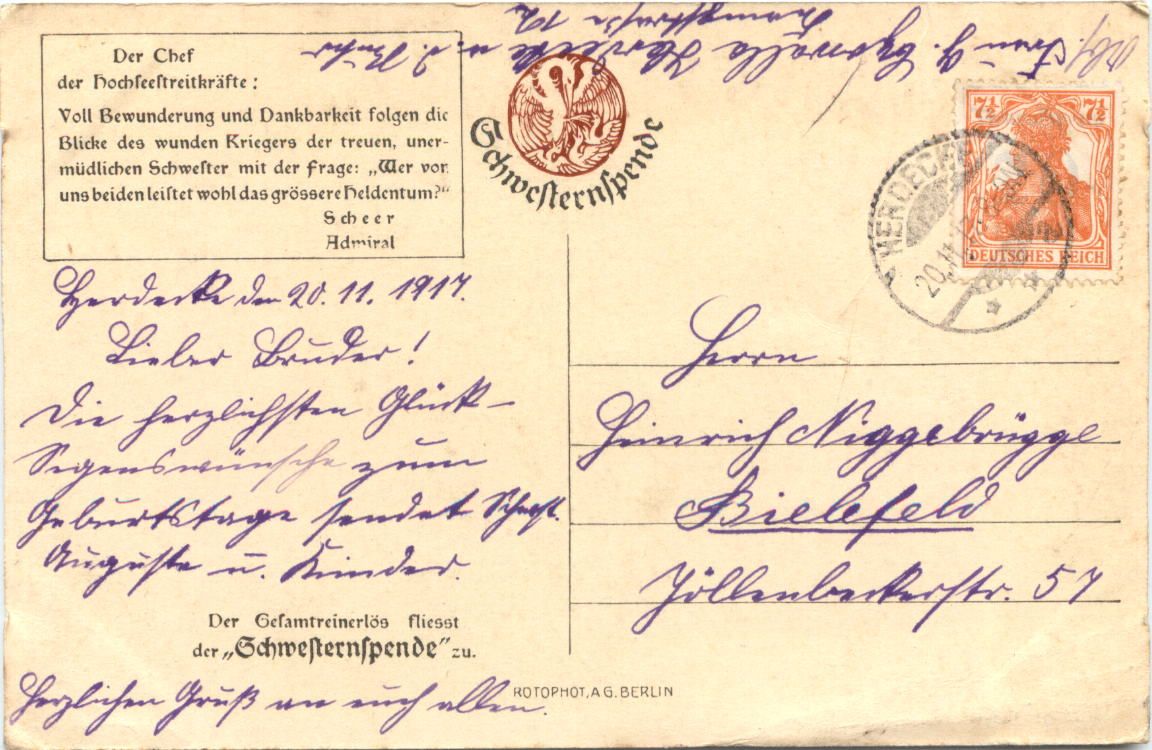 Abs. Frau J.
Herdecke a. d. Ruhr
Der Chef
der Hochseestreitkräfte:
Voll Bewunderung und Dankbarkeit folgen die
Blicke des wunden Kriegers der treuen, uner-
müdlichen Schwester mit der Frage: „Wer von
uns beiden leistet wohl das grössere Heldentum?"
Scheer
Admiral
Schwesternspende
7½ 7½
DEUTSCHES REICH
HERDECKE
20.11.
Herdecke den 20.11.1917.
Lieber Bruder!
Die herzlichsten Glück-
Segenswünsche zum
Geburtstage sendet Schwst.
Auguste u. Kinder.
Der Gesamtreinerlös fliesst
der „Schwesternspende" zu.
Herzlichen Gruß an euch allen.
ROTOPHOT, A G. BERLIN
Herrn
Heinrich Niggebrügge
Bielefeld
Jöllenbeckerstr. 57